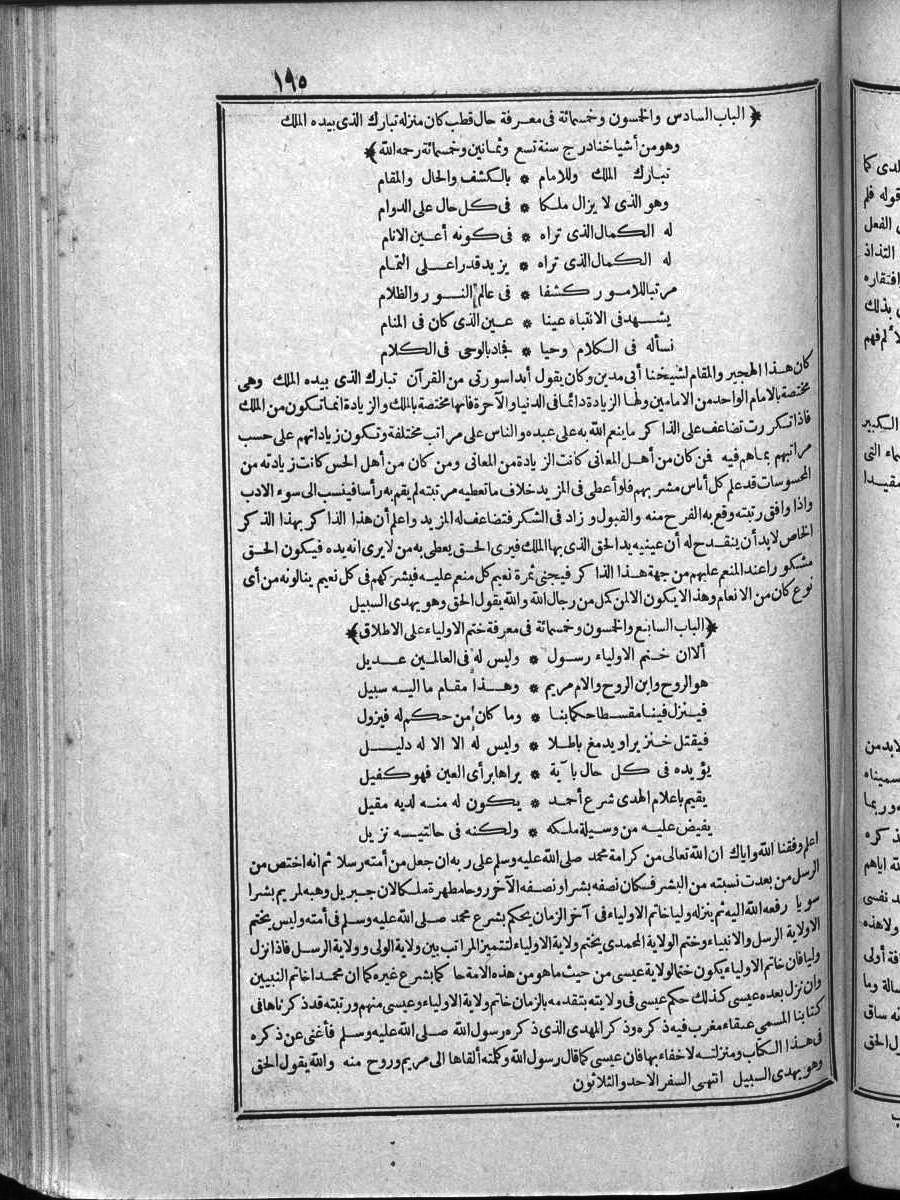 ١٩٥
﴿الباب السادس والخمسون وخمسمائة فى معرفة حال قطب كان منزله تبارك الذى بيده الملك
وهو من أشياخنا درج سنة تسع وثمانين وخمسمائة رحمه الله﴾
تبارك الملك وللامام * بالكشف والحال والمقام
وهو الذى لا يزال ملكا * فى كل حال على الدوام
له الكمال الذى تراه * فى كونه أعين الانام
له الكمال الذى تراه * يزيد قدرا على التمام
مرتبا للامور كشفا * فى عالم النور والظلام
يشهد فى الانتباه عينا * عين الذى كان فى المنام
نسأله فى الكلام وحيا * فجاد بالوحى فى الكلام
كان هذا الهجير والمقام لشيخنا أبى مدين وكان يقول أبدا سورتى من القرآن تبارك الذى بيده الملك وهى
مختصة بالامام الواحد من الامامين ولها الزيادة دائما فى الدنيا والآخرة فانها مختصة بالملك والزيادة انما تكون من الملك
فاذا تكررت تضاعف على الذاكر ما ينعم الله به على عبده والناس على مراتب مختلفة وتكون زياداتهم على حسب
مراتبهم بما هم فيه فمن كان من أهل المعانى كانت الزيادة من المعانى ومن كان من أهل الحس كانت زيادته من
المحسوسات قد علم كل أناس مشربهم فلو أعطى فى المزيد خلاف ما تعطيه مرتبته لم يقم به رأسا فينسب الى سوء الادب
واذا وافق رتبته وقع به الفرح منه والقبول وزاد فى الشكر فتضاعف له المزيد واعلم أن هذا الذاكر بهذا الذكر
الخاص لابد أن ينقدح له أن عينيه يد الحق الذى بها الملك فيرى الحق يعطى به من لا يرى انه يده فيكون الحق
مشكورا عند المنعم عليهم من جهة هذا الذاكر فيجنى ثمرة نعيم كل منعم عليه فيشركهم فى كل نعيم ينالونه من أى
نوع كان من الانعام وهذا لا يكون الا لمن كمل من رجال الله والله يقول الحق وهو يهدى السبيل
﴿الباب السابع والخمسون وخمسمائة فى معرفة ختم الاولياء على الاطلاق﴾
ألا ان ختم الاولياء رسول * وليس له فى العالمين عديل
هو الروح وابن الروح والام مريم * وهذا مقام ما اليه سبيل
فينزل فينا مقسطا حكما بنا * وما كان من حكم له فيزول
فيقتل خنزيرا ويدمغ باطلا * وليس له الا الاله دليل
يؤيده فى كل حال بآية * يراها برأى العين فهو كفيل
يقيم باعلام الهدى شرع أحمد * يكون له منه لديه مقيل
يفيض عليه من وسيلة ملكه * ولكنه فى حالتيه نزيل
اعلم وفقنا الله واياك ان الله تعالى من كرامة محمد صلى الله عليه وسلم على ربه ان جعل من أمته رسلا ثم انه اختص من
الرسل من بعدت نسبته من البشر فكان نصفه بشرا ونصفه الآخر روحا مطهرة ملكا لان جبريل وهبه لمريم بشرا
سويا رفعه الله اليه ثم ينزله وليا خاتم الاولياء فى آخر الزمان يحكم بشرع محمد صلى الله عليه وسلم فى أمته وليس يختم
الا ولاية الرسل والانبياء وختم الولاية المحمدى يختم ولاية الاولياء لتتميز المراتب بين ولاية الولى وولاية الرسل فاذا نزل
وليا فان خاتم الاولياء يكون ختما لولاية عيسى من حيث ما هو من هذه الامة حاكما بشرع غيره كما ان محمدا خاتم النبيين
وان نزل بعده عيسى كذلك حكم عيسى فى ولايته بتقدمه بالزمان خاتم ولاية الاولياء وعيسى منهم ورتبته قد ذكرناها فى
كتابنا المسمى عنقاء مغرب فيه ذكره وذكر المهدى الذى ذكره رسول الله صلى الله عليه وسلم فأغنى عن ذكره
فى هذا الكتاب ومنزلته لا خفاء بها فان عيسى كما قال رسول الله وكلمته ألقاها الى مريم وروح منه والله يقول الحق
وهو يهدى السبيل انتهى السفر الاحد والثلاثون